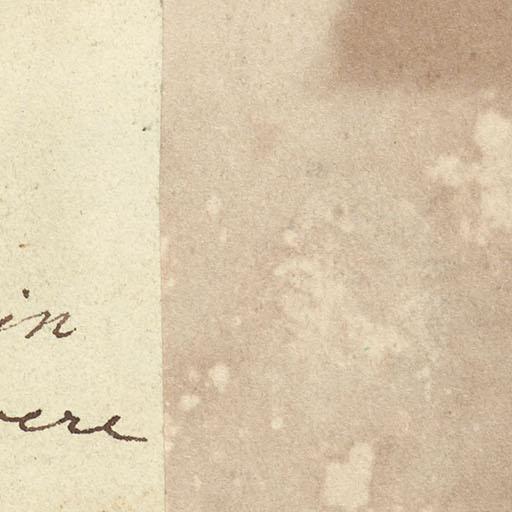 in
ere